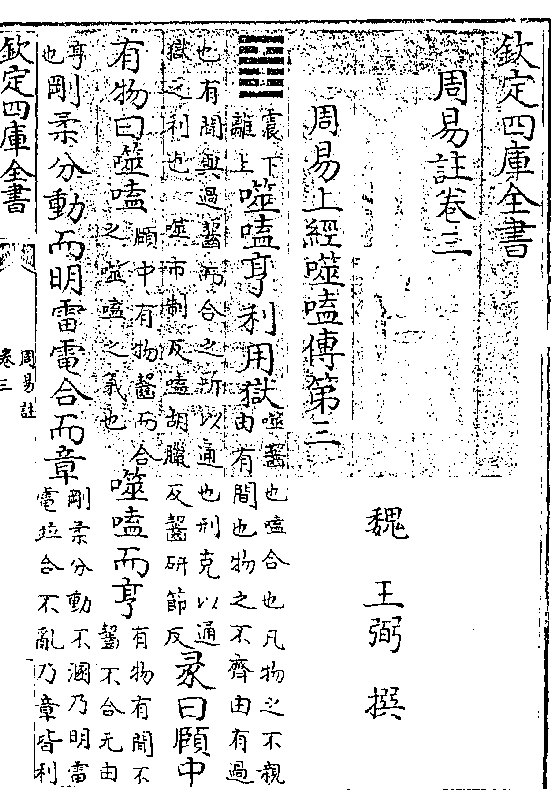 欽定四庫全書
周易註卷三
魏 王弼 撰
周易上經噬嗑傳第三
震下
離上
噬嗑亨利用獄
噬齧也嗑合也凡物之不親
由有間也物之不齊由有過
也有間與過齧而合之所以通也刑克以通
獄之利也 噬市制反嗑胡臘反齧研節反
彖曰頤中
有物曰噬嗑
頤中有物齧而合
之噬嗑之義也
噬嗑而亨
有物有間不
齧不合无由
亨也
剛柔分動而明雷電合而章
剛柔分動不溷乃明雷
電竝合不亂乃章皆利
欽定四庫全書
周易註
卷三